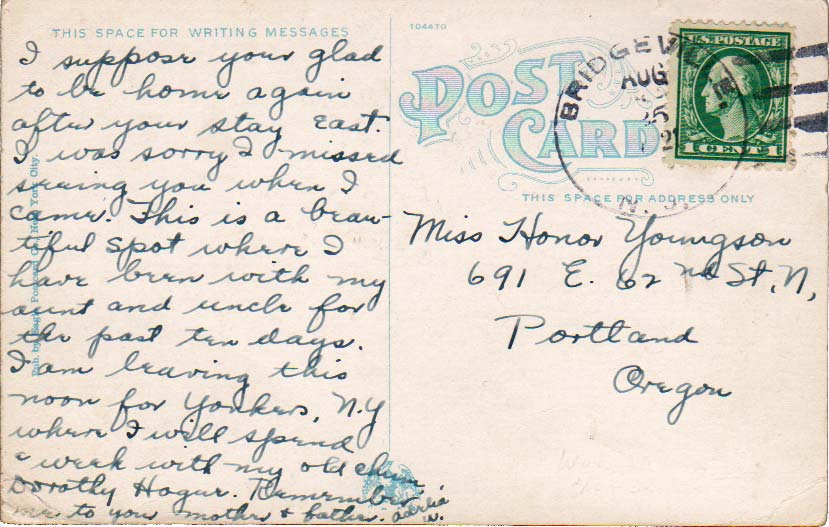 THIS SPACE FOR WRITING MESSAGES
I suppose your glad
to be home again
after your stay East.
I was sorry I missed
seeing you when I
came. This is a beau-
tiful spot where I
have been with my
aunt and uncle for
the past ten days.
I am leaving this
noon for Yonkers, N.Y
where I will spend
a week with my old chum
Dorothy Hagur. Remember
me to your mother & father.
Pub. by Eagle Post Card Co., New York City.
104470
POST
CARD
THIS SPACE FOR ADDRESS ONLY
BRIDGEW
AUG
25
N.J.
U.S. POSTAGE
1 CENT 1
Miss Honor Youngson
691 E. 62nd St, N,
Portland
Oregon